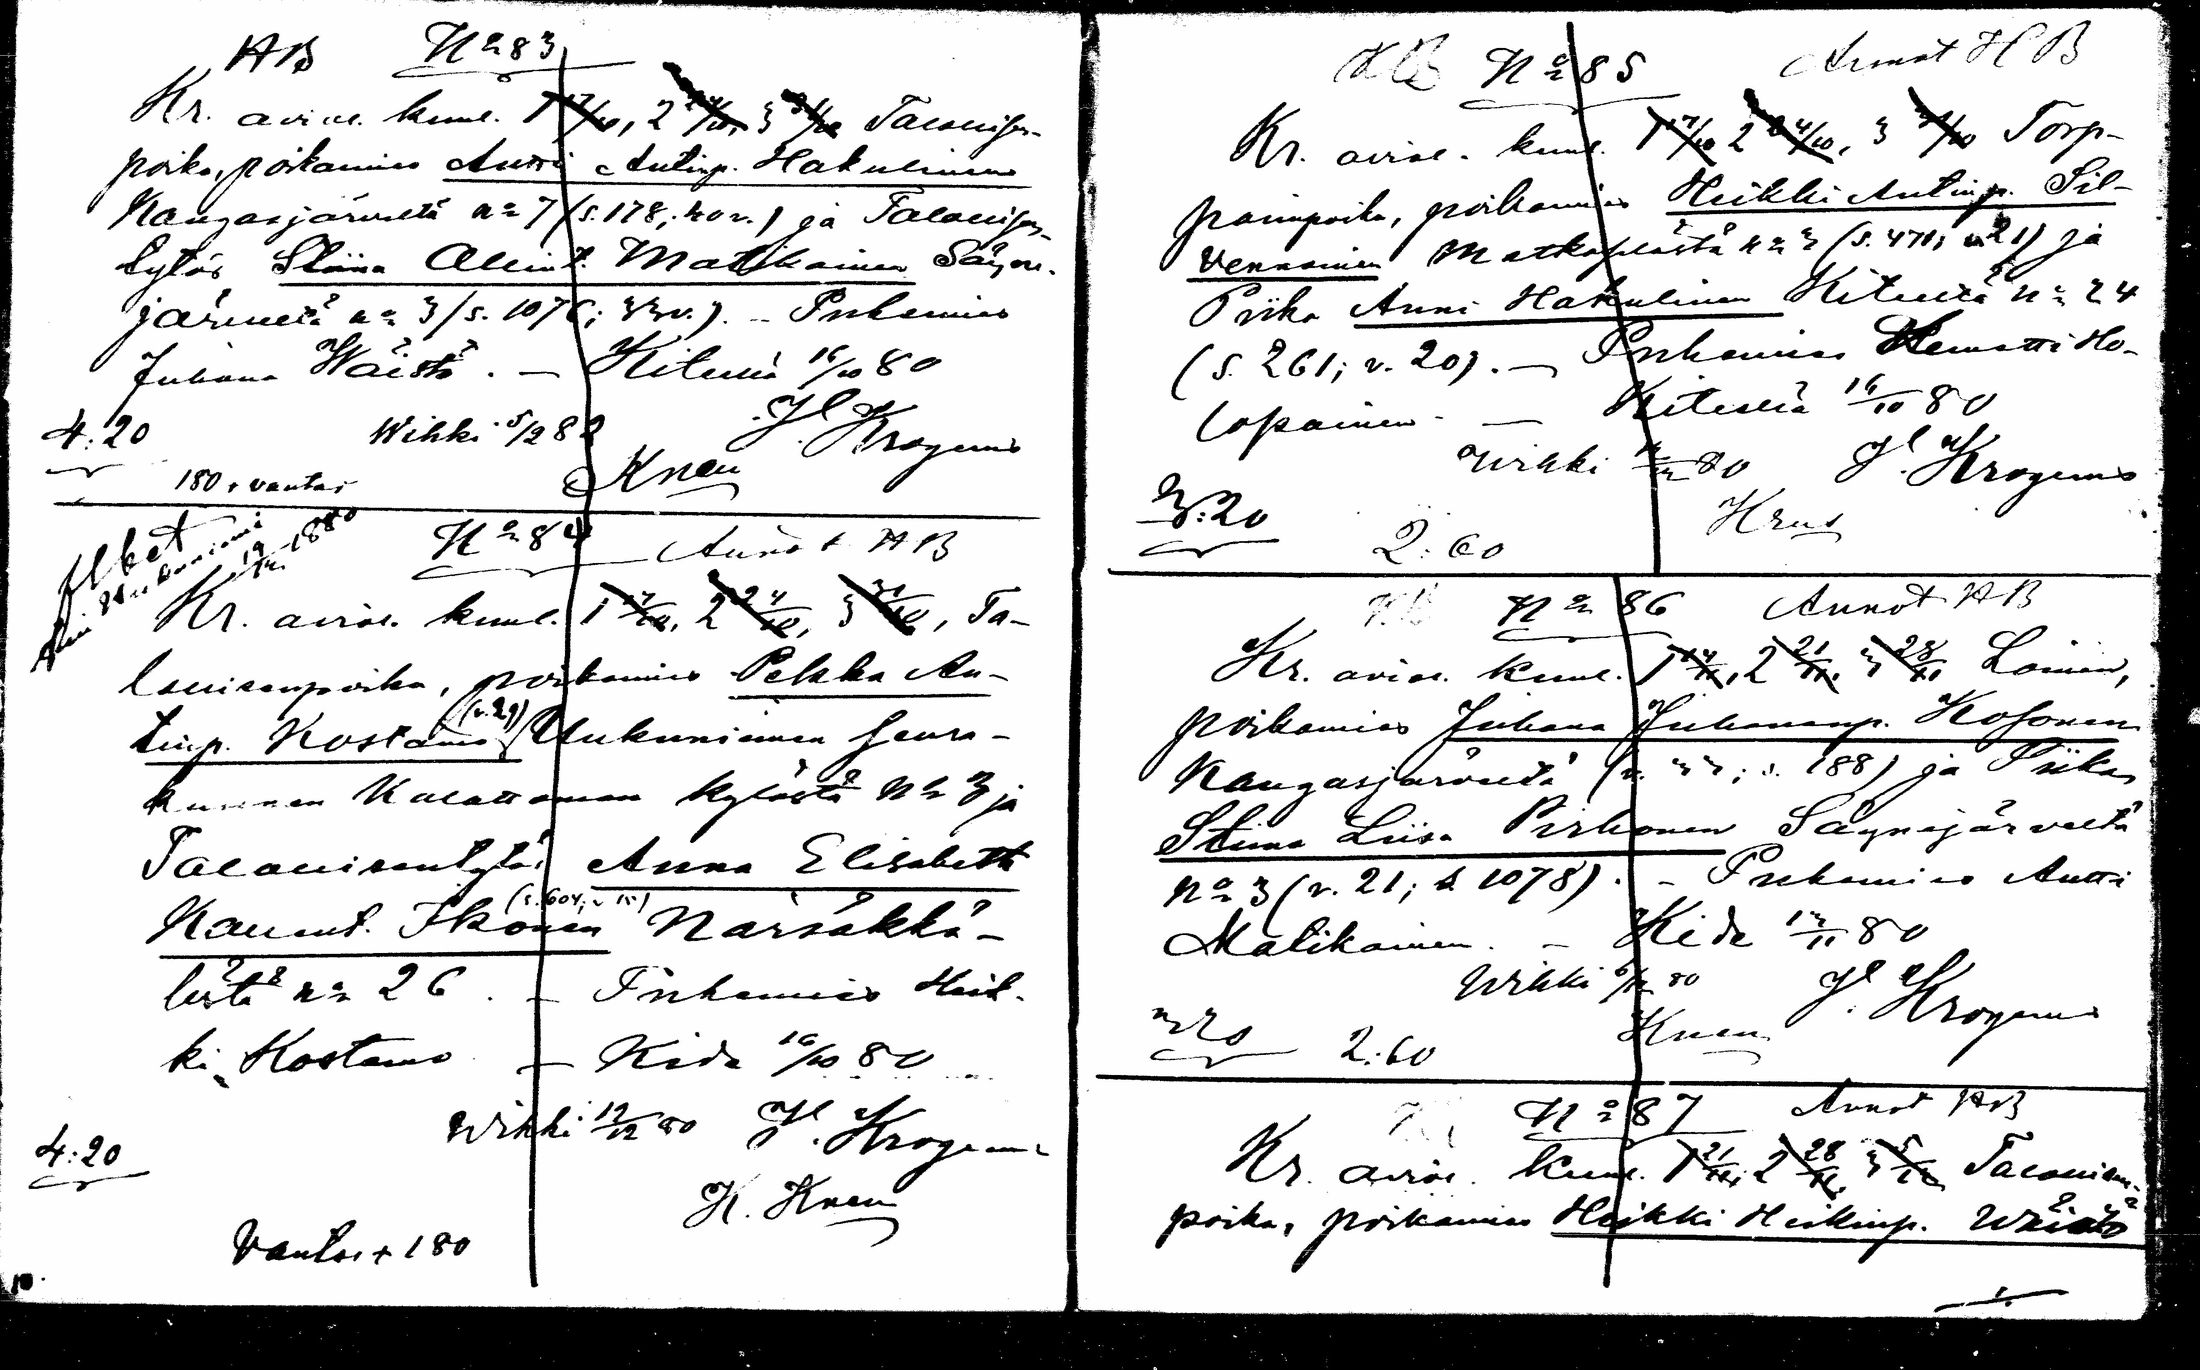 HB No 83
Kr. aviol. kuul. 1 17/10, 2 24/10, 3 31/10 Talonisen-
poika, poikamies Antti Antinp. Hakulinen
Kangasjärveltä no 7 (s. 178; 20 v.) ja Talonisen-
tytär Stiina Allint. Matikainen Säyne-
järveltä no 3 (s. 1076; v.). – Puhemies
Juhana Wäistö. – Kiteellä 16/10 80
4:20 Wihki 5/12 82 J. Krogerus
180 + vantar Knen
No 84 Annot HB
19/12 1880
Kr. aviol. kuul. 1 17/10, 2 24/10, 3 31/10, Ta-
lonisenpoika, poikamies Pekka An-
tinp. Kostamo (v. 29) Uukuniemen seura-
kunnan Kalattoman kylästä No 3 ja
Talonisentytär Anna Elisabett
Kaurint. Ikonen (s. 604; v 15) Närsäkkä-
lästä no 26. – Puhemies Heik-
ki Kostamo – Kide 16/10 80
Wihki 19/12 80 J. Krogerus
4:20
K. Knen
Vantar + 180
HB No 85 Annot HB
Kr. aviol. kuul. 1 17/10 2 24/10, 3 31/10 Torp-
parinpoika, poikamies Heikki Antinp. Sil-
vennoinen Matkaselästä no 3 (s. 471; v. 21) ja
Piika Anni Hakulinen Kiteeltä no 24
(s. 261; v. 20). – Puhemies Klemetti Ho-
lopainen – Kiteellä 16/10 80
Wihki 80 J. Krogerus
3:20 2:60
No 86 Annot HB
Kr. aviol. kuul. 1 14/11, 2 21/11, 3 28/11 Loinen,
poikamies Juhana Juhananp. Kosonen
Kangasjärveltä (v. 33; s. 188) ja Piika
Stiina Liisa Pirhonen Säynejärveltä
no 3 (v. 21; s. 1078). – Puhemies Antti
Matikainen. – Kide 13/11 80
Wihki 6/12 80 J. Krogerus
3 20 2:60 Knen
No 87 Annot HB
Kr. aviol. kuul. 1 21/11, 2 28/11, 3 5/12 Talonisen-
poika, poikamies Heikki Heikinp. Wäistö